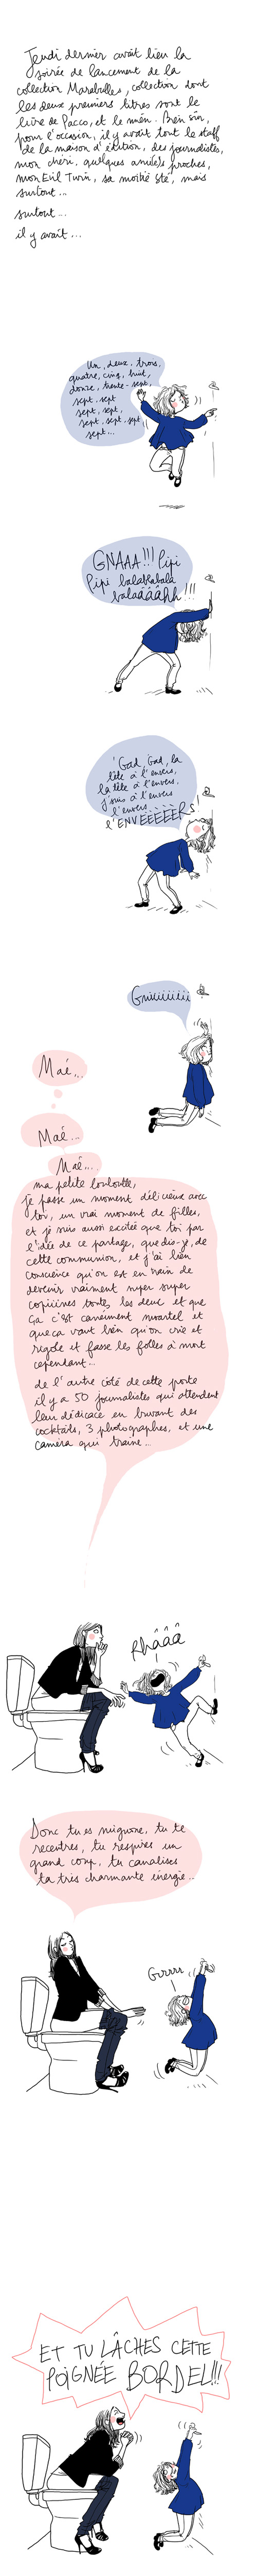 Jeudi dernier avait lieu la
soirée de lancement de la
collection Marabulles, collection dont
les deux premiers titres sont le
livre de Pacco, et le mien. Bien sûr,
pour l'occasion, il y avait tout le staff
de la maison d'édition, des journalistes,
mon chéri, quelques amies proches,
mon Evil Twin, sa moitié Sté, mais
surtout...
surtout...
il y avait...
Un, deux, trois,
quatre, cinq, huit,
donze, trente-sept,
sept, sept
sept, sept,
sept, sept, sept,
sept...
GNAAA!!! Pipi
Pipi balablabala
balaaââhh!!!
Gad, Gad, la
tête à l'envers,
la tête à l'envers.
j'suis à l'envers
l'envers.
l'ENVEEÈÈERS
Gniiiiiiiiii
Maé...
Maé...
Maé...
ma petite louloutte,
je passe un moment délicieux avec
toi, un vrai moment de filles,
et je suis aussi excitée que toi par
l'idée de ce partage, que dis-je, de
cette communion, et j'ai bien
conscience qu'on est en train de
devenir vraiment super super
copiiines toutes les deux et que
ça c'est carrément mortel et
que ça vaut bien qu'on crie et
rigole et fasse les folles à mort
cependant...
de l'autre côté de cette porte
il y a 50 journalistes qui attendent
leur dédicace en buvant des
cocktails, 3 photographes, et une
caméra qui traine...
Rhâââ
Donc tu es mignonne, tu te
recentres, tu respires un
grand coup, tu canalises
ta très charmante énergie...
Grrrrr
ET TU LÂCHES CETTE
POIGNÉE BORDEL!!!